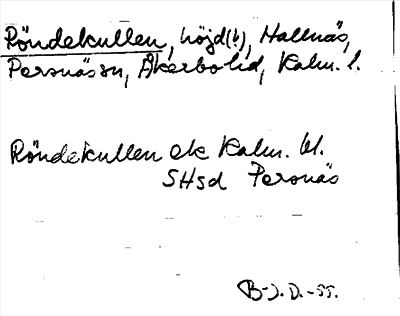 Röndekullen, höjd(!), Hallnäs,
Persnäs sn, Åkerbo hd, Kalm. l.
Röndekullen ek Kalm. bl.
SHsd Persnäs
B-J. D. -55.